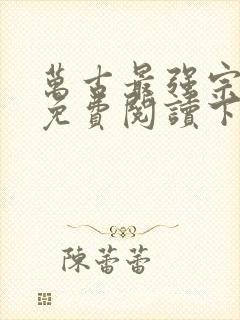 萬古最強宗
免費閱讀下
陳蕾蕾